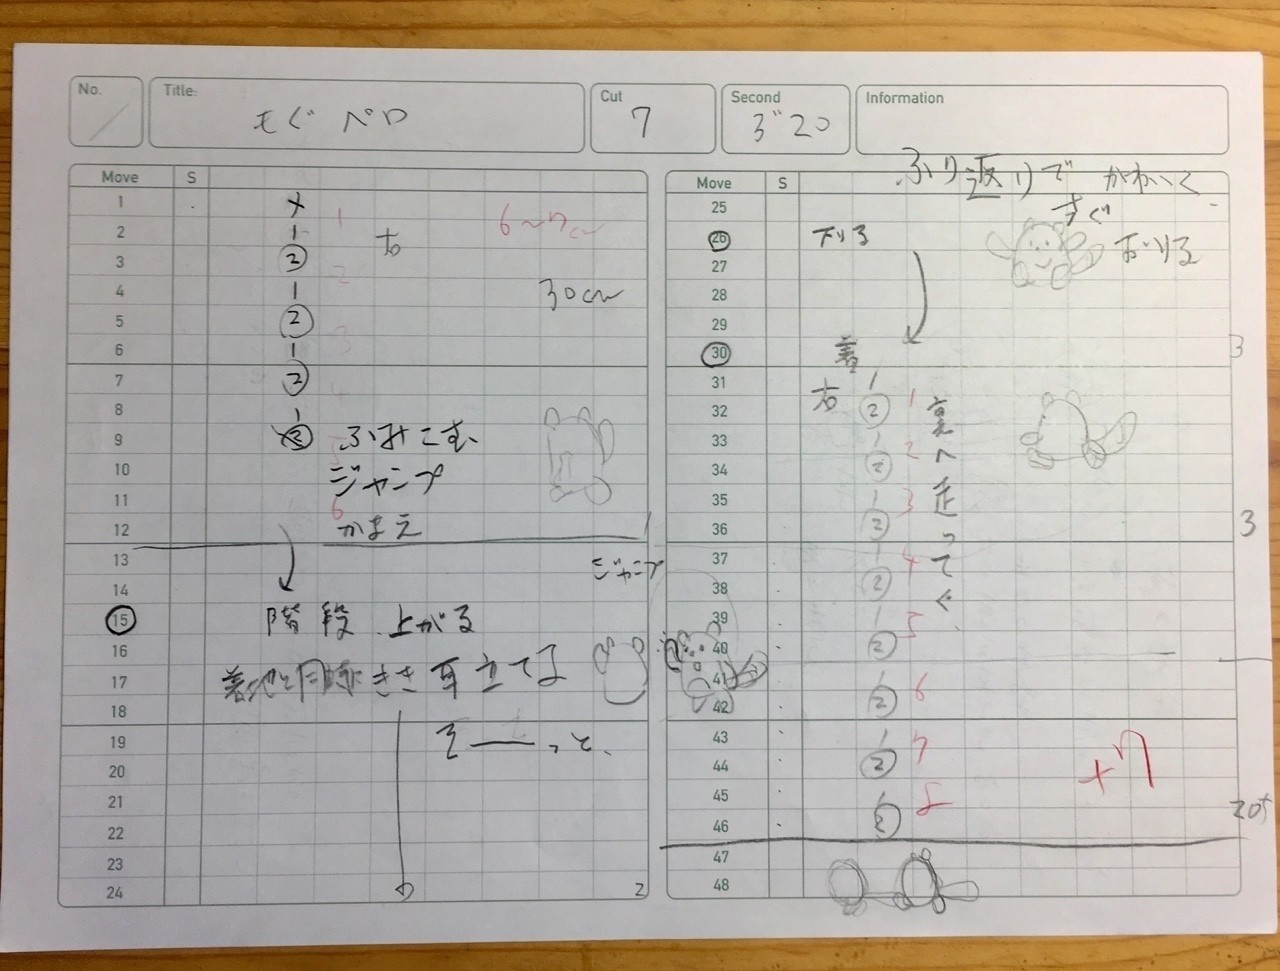 No.
Title:
もぐ ペロ
Cut
7
Second
3"20
Information
Move S
1 ×
2 1 右
3 2
4 1 30cm
5 2
6 1
7 2
8 1
9 2 ふみこむ、
10 ジャンプ
11 6
12 かまえ
13
14
15 階段 上がる
16
17 着地と同時にきき耳立てる
18
19 そ──っと、
20
21
22
23
24 2
1
2
3
6〜7cm
ジャンプ
Move S
ふり返りで かわいく
25 すぐ
26 下りる おりる
27
28
29
30 着 3
31 1
32 右 2 1
33 1 2
34 2
35 1 3
36 2 3
37 1 4
38 2
39 1 5
40 2
41
42 2 6
43 1 7
44 2
45 1 8
46 2
47
48
裏へ走ってく、
+7